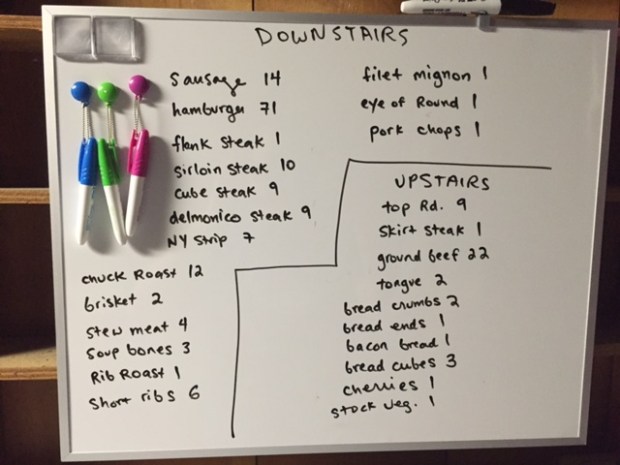 DOWNSTAIRS
sausage 14
hamburger 71
flank steak 1
sirloin steak 10
cube steak 9
delmonico steak 9
NY strip 7
chuck Roast 12
brisket 2
stew meat 4
soup bones 3
Rib Roast 1
short ribs 6
filet mignon 1
eye of Round 1
pork chops 1
UPSTAIRS
top Rd. 9
skirt steak 1
ground beef 22
tongue 2
bread crumbs 2
bread ends 1
bacon bread 1
bread cubes 3
cherries 1
stock veg. 1